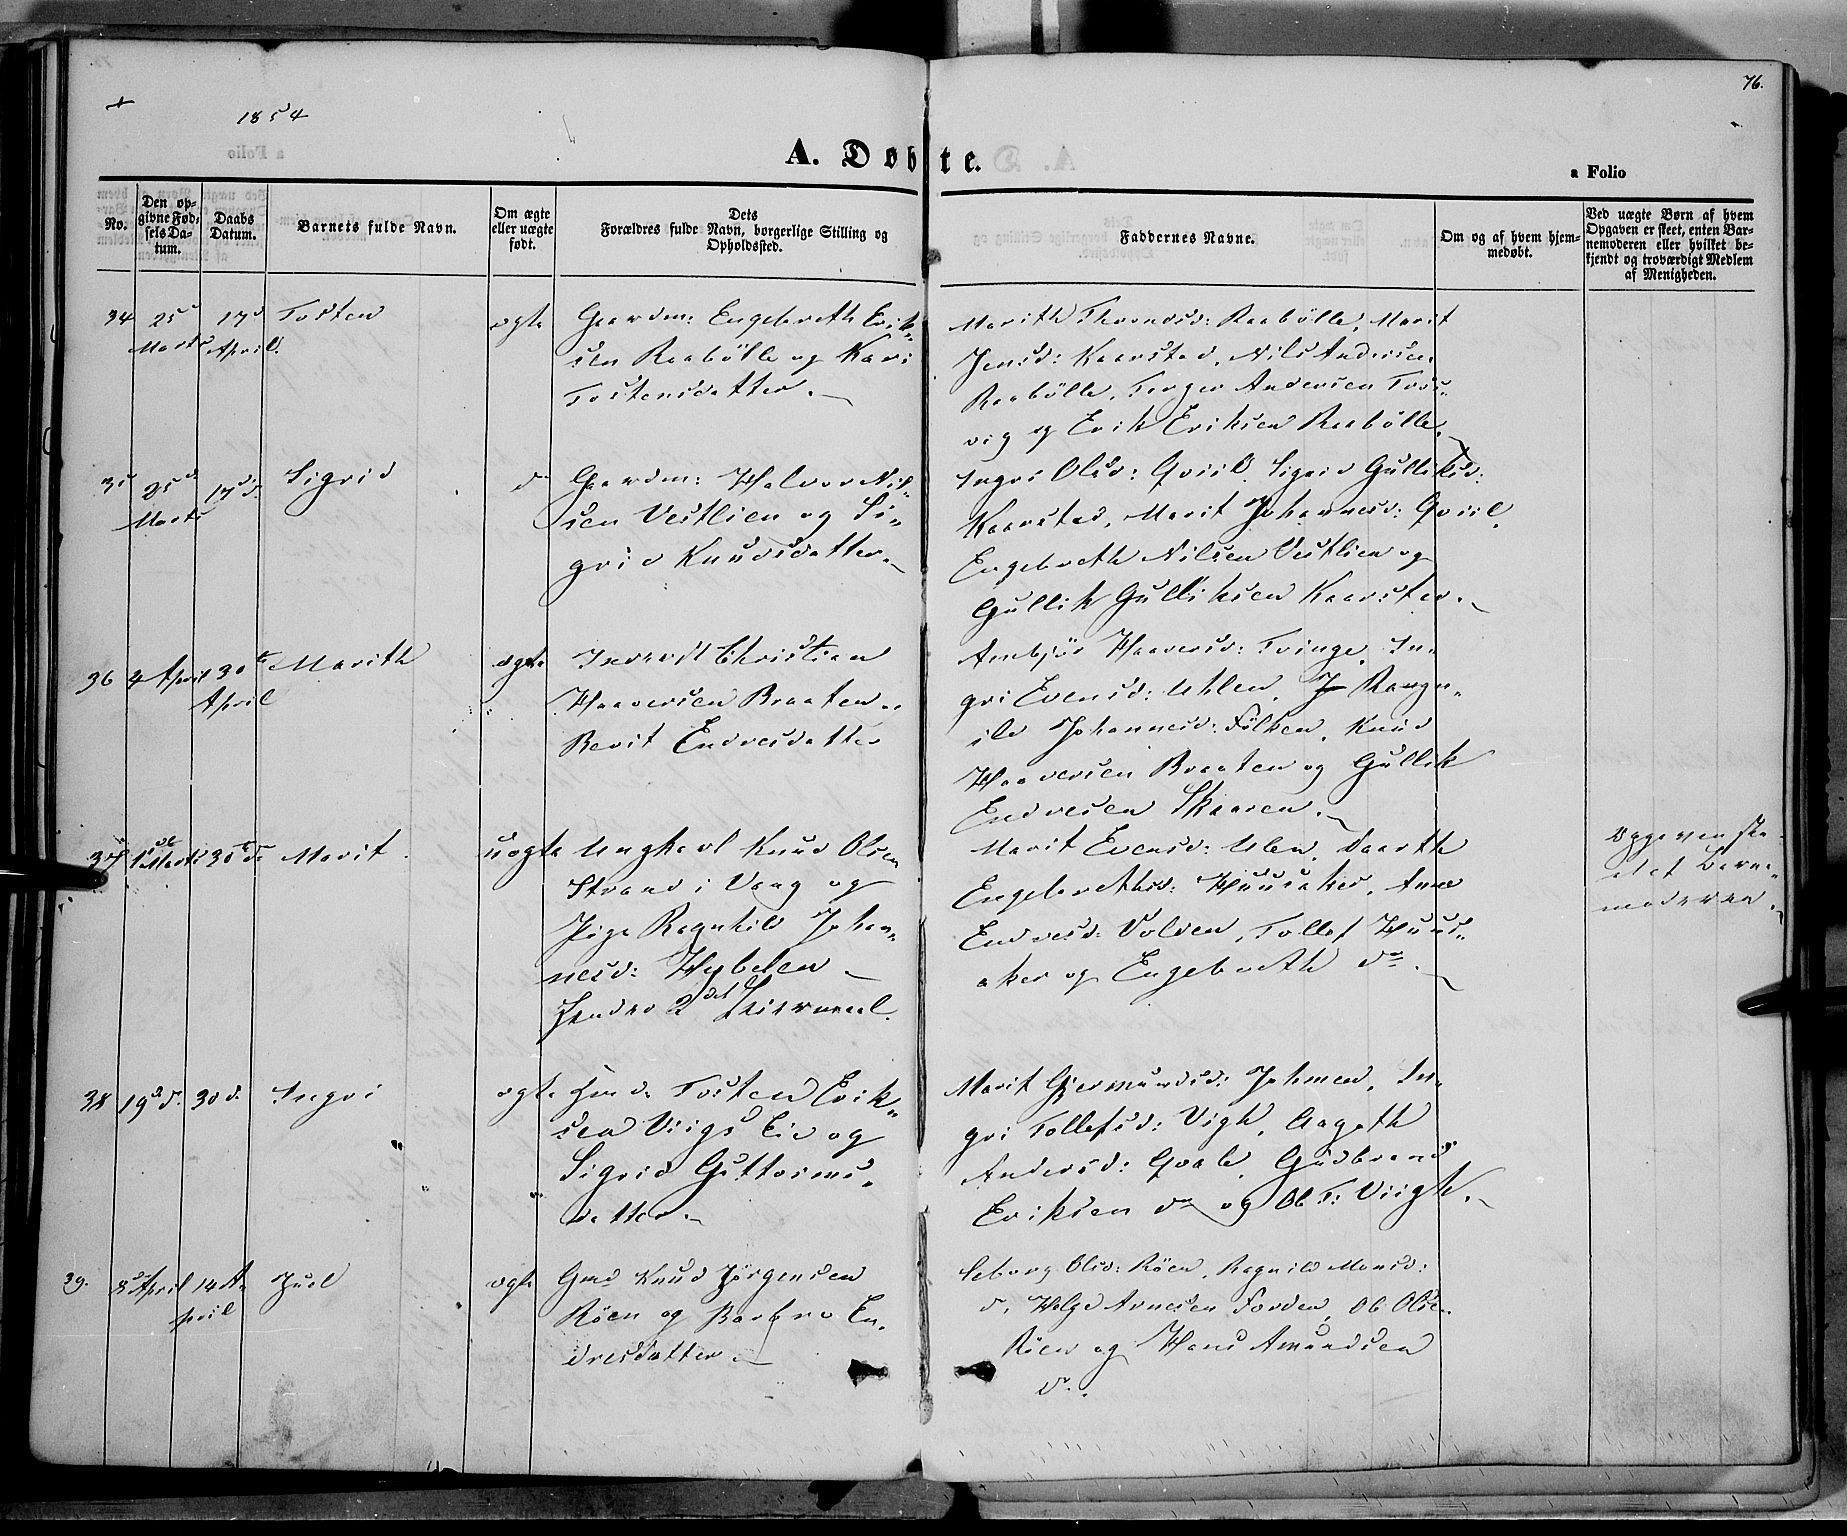 76.
1854
A. Døbte.
a Folio
No.
Den op-
givne Fød-
sels Da-
tum.
Daabs
Datum.
Barnets fulde Navn.
Om ægte
eller uægte
født.
Dets
Forældres fulde Navn, borgerlige Stilling og
Opholdssted.
Faddernes Navne.
Om og af hvem hjem-
medøbt.
Ved uægte Børn af hvem
Opgaven er skeet, enten Bar-
nemoderen eller hvilket be-
kjendt og troværdigt Medlem
af Menigheden.
34
25
Marts
17d
April.
Tosten
ægte
Gaardm: Engebreth Erik-
sen Raabölle og Kari
Tostensdatter.
Marith Thomasd: Raabölle, Marit
Jensd: Kaarstad, Nils Andersen
Raabölle, Andersen
vig og Erik Eriksen Raabölle.
35
25d
Marts
17d d.
Sigrid
d
Gaardm: Halvor Nil-
sen Vestlien og Si-
grid Knudsdatter.
Ingri Olsd: Qviil, Sigrid Gulliksd:
Kaarstad, Marit Johannesd: Qviil,
Engebreth Nilsen Vestlien og
Gullik Gulliksen Kaarstad.
36
4 April
30te
April
Marith
ægte
Inderst Christian
Haaversen Braaten
Berit Endresdatter
Ambjör Haaversd: Tvinge, In-
gri Evensd: Uhlen, Rangn-
ild Johannesd: Fölken, Knud
Haaversen Braaten og Gullik
Endresen Skaaren.
37
Marts
30 d.
Marit
uægte
Ungkarl Knud Olsen
Strand i Vang og
Pige Ragnhild Johan-
nesd: Hybelen
Hendes 2det Leiermaal.
Marit Evensd: Ulen, Daarth
Engebrethsd: Huusaker, Anne
Endresd: Volden, Tollef Huus-
aker og Engebreth do.
Opgaven ska-
etet Barne-
moderen.
38
19d d.
30 d.
Ingri
ægte
Hmd. Tosten Erik-
sen Viigs Eie og
Sigrid Guttorms-
datter
Marit Gjermundsd: Johmen, In-
gri Tollefsd: Vigh, Aagoth
Andersd: Qvale, Gudbrand
Eriksen do og Ole T: Viigh.
39.
8 April
14 A-
pril
Juul
ægte
Gmd Knud Jörgensen
Röen og Barbro En-
dresdatter
Seborg Olsd: Röen, Ragnild Monsd:
d, Helge Arnesen Forden, Ole Olse
Röen og Hans Amundsen
do.